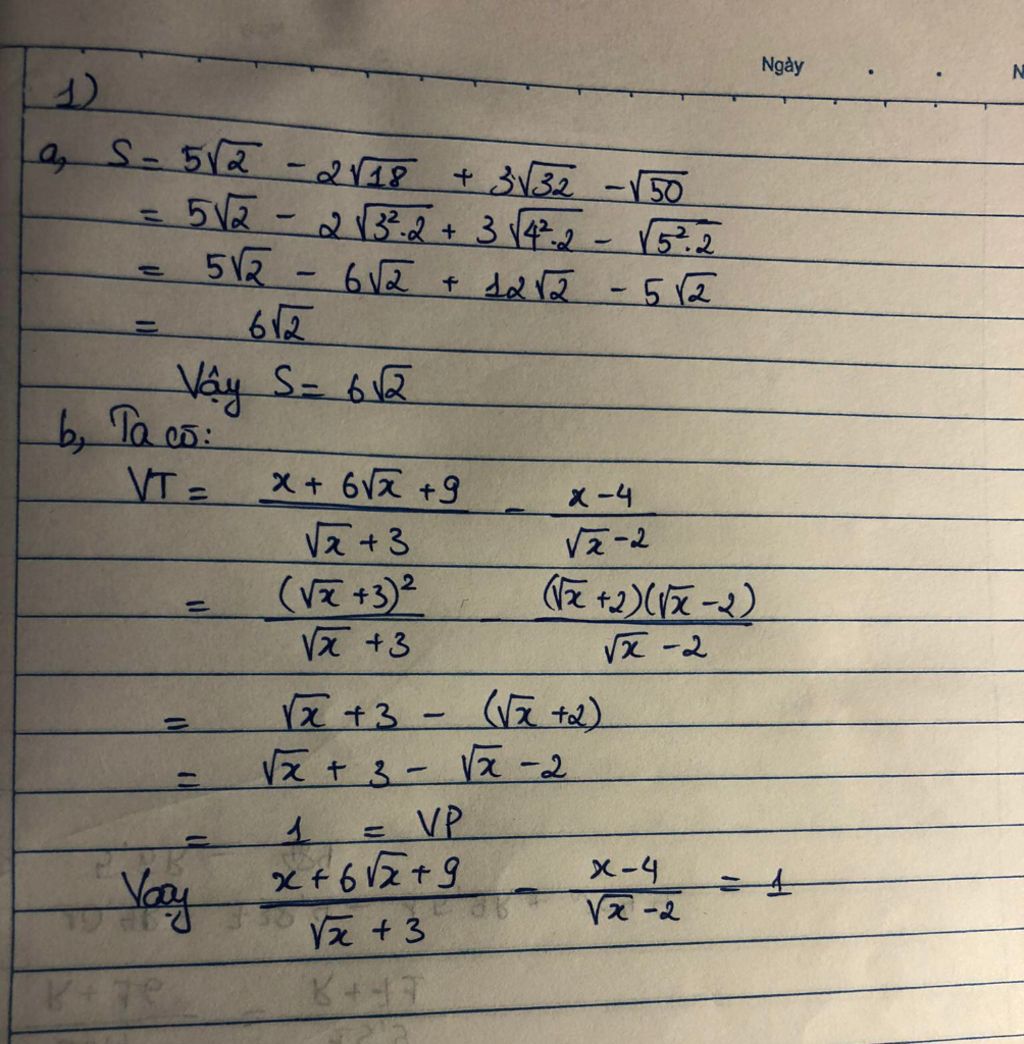 Ngày . . N
1)
a, S = 5√2 - 2√18 + 3√32 - √50
= 5√2 - 2√3².2 + 3√4².2 - √5².2
= 5√2 - 6√2 + 12√2 - 5√2
= 6√2
Vậy S = 6√2
b, Ta có:
VT = (x + 6√x + 9)/(√x + 3) - (x - 4)/(√x - 2)
= (√x + 3)²/(√x + 3) - (√x + 2)(√x - 2)/(√x - 2)
= √x + 3 - (√x + 2)
= √x + 3 - √x - 2
= 1 = VP
Vậy (x + 6√x + 9)/(√x + 3) - (x - 4)/(√x - 2) = 1